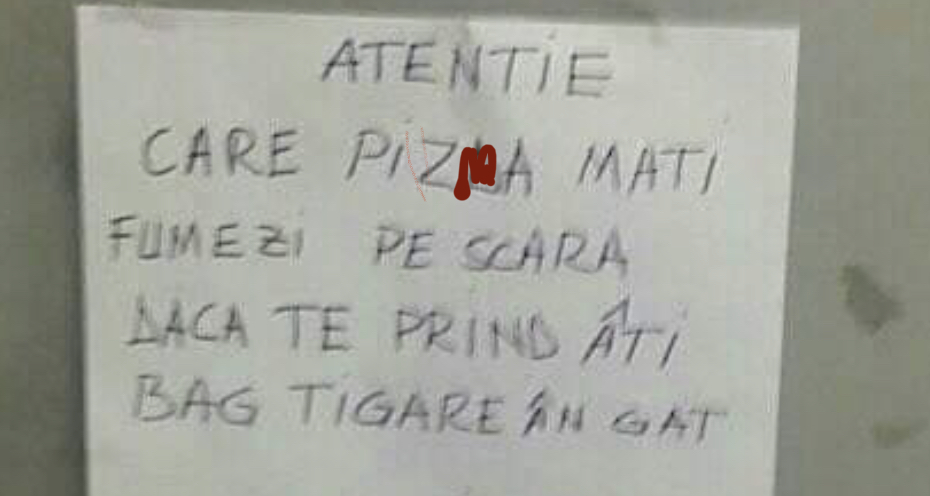 ATENTIE
CARE MATI
FUMEZI PE SCARA
DACA TE PRIND ÂTI
BAG TIGARE ÂN GAT